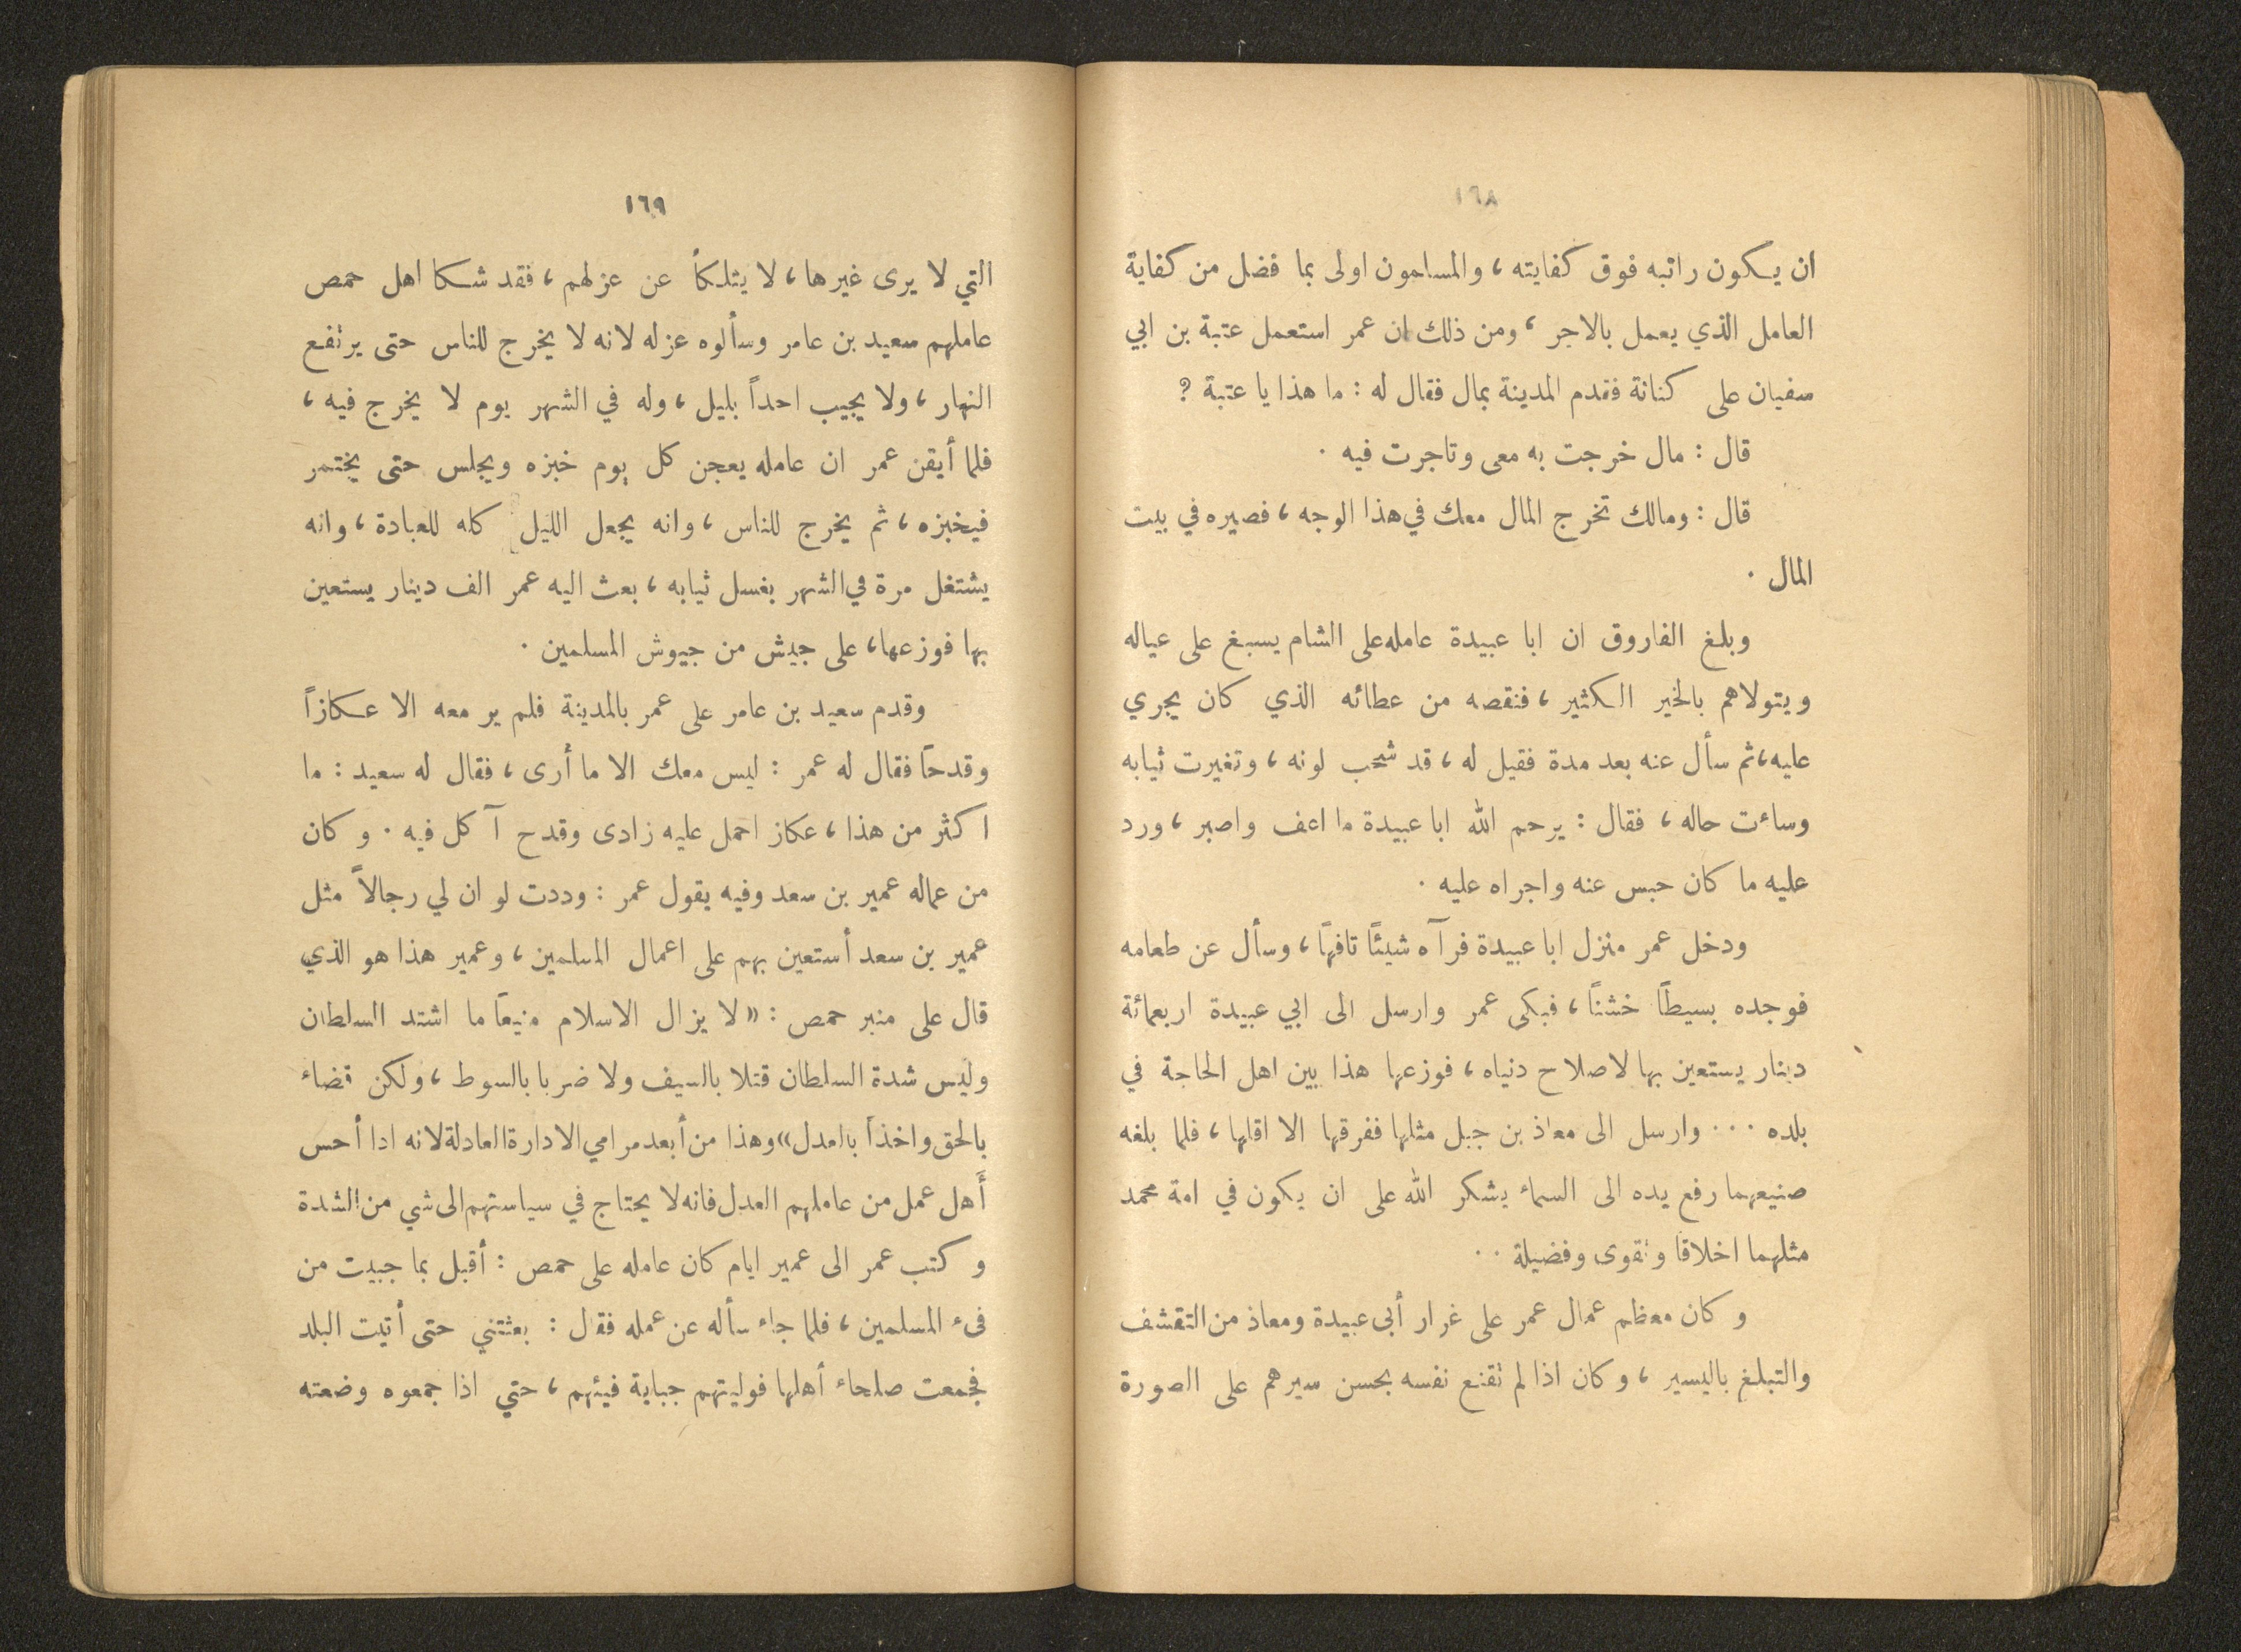 ١٦٨
ان يكون راتبه فوق كفايته، والمسلمون اولى بما فضل من كفاية
العامل الذي يعمل بالاجر، ومن ذلك ان عمر استعمل عتبة بن ابي
سفيان على كنانة فقدم المدينة بمال فقال له : ما هذا يا عتبة ؟
قال : مال خرجت به معى وتاجرت فيه .
قال : ومالك تخرج المال معك في هذا الوجه، فصيره في بيت
المال .
وبلغ الفاروق ان ابا عبيدة عامله على الشام يسبغ على عياله
ويتولاهم بالخير الكثير، فنقصه من عطائه الذي كان يجري
عليه، ثم سأل عنه بعد مدة فقيل له، قد شحب لونه، وتغيرت ثيابه
وساءت حاله، فقال : يرحم الله ابا عبيدة ما اعف واصبر، ورد
عليه ما كان حبس عنه واجراه عليه .
ودخل عمر منزل ابا عبيدة فرآه شيئاً تافهاً، وسأل عن طعامه
فوجده بسيطاً خشناً، فبكى عمر وارسل الى ابي عبيدة اربعمائة
دينار يستعين بها لاصلاح دنياه، فوزعها هذا بين اهل الحاجة في
بلده ... وارسل الى معاذ بن جبل مثلها ففرقها الا اقلها، فلما بلغه
صنيعهما رفع يده الى السماء يشكر الله على ان يكون في امة محمد
مثلهما اخلاقا وتقوى وفضيلة ..
وكان معظم عمال عمر على غرار أبى عبيدة ومعاذ من التقشف
والتبلغ باليسير، وكان اذا لم تقنع نفسه بحسن سيرهم على الصورة
١٦٩
التي لا يرى غيرها، لا يتلكأ عن عزلهم، فقد شكا اهل حمص
عاملهم سعيد بن عامر وسألوه عزله لانه لا يخرج للناس حتى يرتفع
النهار، ولا يجيب احداً بليل، وله في الشهر يوم لا يخرج فيه،
فلما أيقن عمر ان عامله يعجن كل يوم خبزه ويجلس حتى يختمر
فيخبزه، ثم يخرج للناس، وانه يجعل الليل كله للعبادة، وانه
يشتغل مرة في الشهر بغسل ثيابه، بعث اليه عمر الف دينار يستعين
بها فوزعها، على جيش من جيوش المسلمين .
وقدم سعيد بن عامر على عمر بالمدينة فلم ير معه الا عكازاً
وقدحاً فقال له عمر : ليس معك الا ما أرى، فقال له سعيد : ما
اكثر من هذا، عكاز احمل عليه زادى وقدح آكل فيه . وكان
من عماله عمير بن سعد وفيه يقول عمر : وددت لو ان لي رجالاً مثل
عمير بن سعد أستعين بهم على اعمال المسلمين، وعمير هذا هو الذي
قال على منبر حمص : «لا يزال الاسلام منيعاً ما اشتد السلطان
وليس شدة السلطان قتلا بالسيف ولا ضربا بالسوط، ولكن قضاء
بالحق واخذاً بالعدل» وهذا من أبعد مرامي الادارة العادلة لانه اذا أحس
أَهل عمل من عاملهم العدل فانه لا يحتاج في سياستهم الى شي من الشدة
وكتب عمر الى عمير ايام كان عامله على حمص : أقبل بما جبيت من
فىء المسلمين، فلما جاء سأله عن عمله فقال : بعثتني حتى أتيت البلد
فجمعت صلحاء أهلها فوليتهم جباية فيئهم، حتي اذا جمعوه وضعته